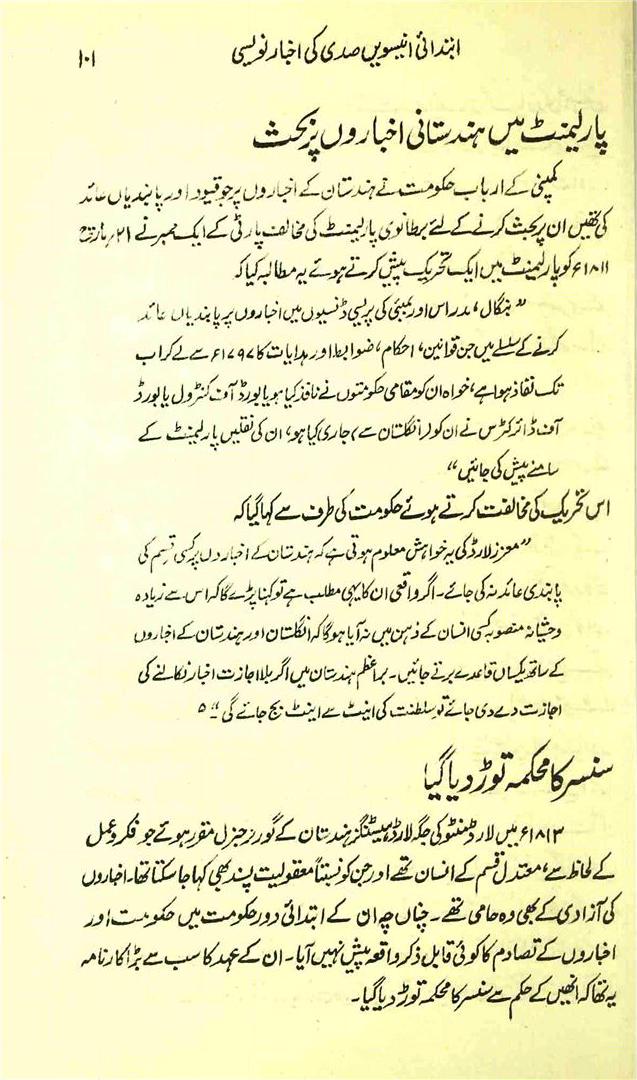 ابتدائی انیسویں صدی کی اخبار نویسی ۱۰۱
پارلیمنٹ میں ہندستانی اخباروں پر بحث
کمپنی کے ارباب حکومت نے ہندستان کے اخباروں پر جو قیود اور پابندیاں عائد
کی تھیں ان پر بحث کرنے کے لئے برطانوی پارلیمنٹ کی مخالف پارٹی کے ایک ممبر نے ۲۱ مارچ
۱۸۱۱ء کو پارلیمنٹ میں ایک تحریک پیش کرتے ہوئے یہ مطالبہ کیا کہ
”بنگال، مدراس اور بمبئی کی پریسی ڈنسیوں میں اخباروں پر پابندیاں عائد
کرنے کے سلسلے میں جن قوانین، احکام، ضوابط اور ہدایات کا ۱۷۹۷ء سے لے کر اب
تک نفاذ ہوا ہے، خواہ ان کو مقامی حکومتوں نے نافذ کیا ہو یا بورڈ آف کنٹرول یا بورڈ
آف ڈائرکٹرس نے ان کو (انگلستان سے) جاری کیا ہو، ان کی نقلیں پارلیمنٹ کے
سامنے پیش کی جائیں“
اس تحریک کی مخالفت کرتے ہوئے حکومت کی طرف سے کہا گیا کہ
”معزز لارڈ کی یہ خواہش معلوم ہوتی ہے کہ ہندستان کے اخباروں پر کسی قسم کی
پابندی عائد نہ کی جائے۔ اگر واقعی ان کا یہی مطلب ہے تو کہنا پڑے گا کہ اس سے زیادہ
وحشیانہ منصوبہ کسی انسان کے ذہن میں نہ آیا ہوگا کہ انگلستان اور ہندستان کے اخباروں
کے ساتھ یکساں قاعدے برتے جائیں۔ براعظم ہندستان میں اگر بلا اجازت اخبار نکالنے کی
اجازت دے دی جائے تو سلطنت کی اینٹ سے اینٹ بج جائے گی“ ۵
سنسر کا محکمہ توڑ دیا گیا
۱۸۱۳ء میں لارڈ منٹو کی جگہ لارڈ ہیسٹنگز ہندستان کے گورنر جنرل مقرر ہوئے جو فکر و عمل
کے لحاظ سے، معتدل قسم کے انسان تھے اور جن کو نسبتاً معقولیت پسند بھی کہا جا سکتا تھا۔ اخباروں
کی آزادی کے بھی وہ حامی تھے۔ چناں چہ ان کے ابتدائی دور حکومت میں حکومت اور
اخباروں کے تصادم کا کوئی قابل ذکر واقعہ پیش نہیں آیا۔ ان کے عہد کا سب سے بڑا کارنامہ
یہ تھا کہ انھیں کے حکم سے سنسر کا محکمہ توڑ دیا گیا۔